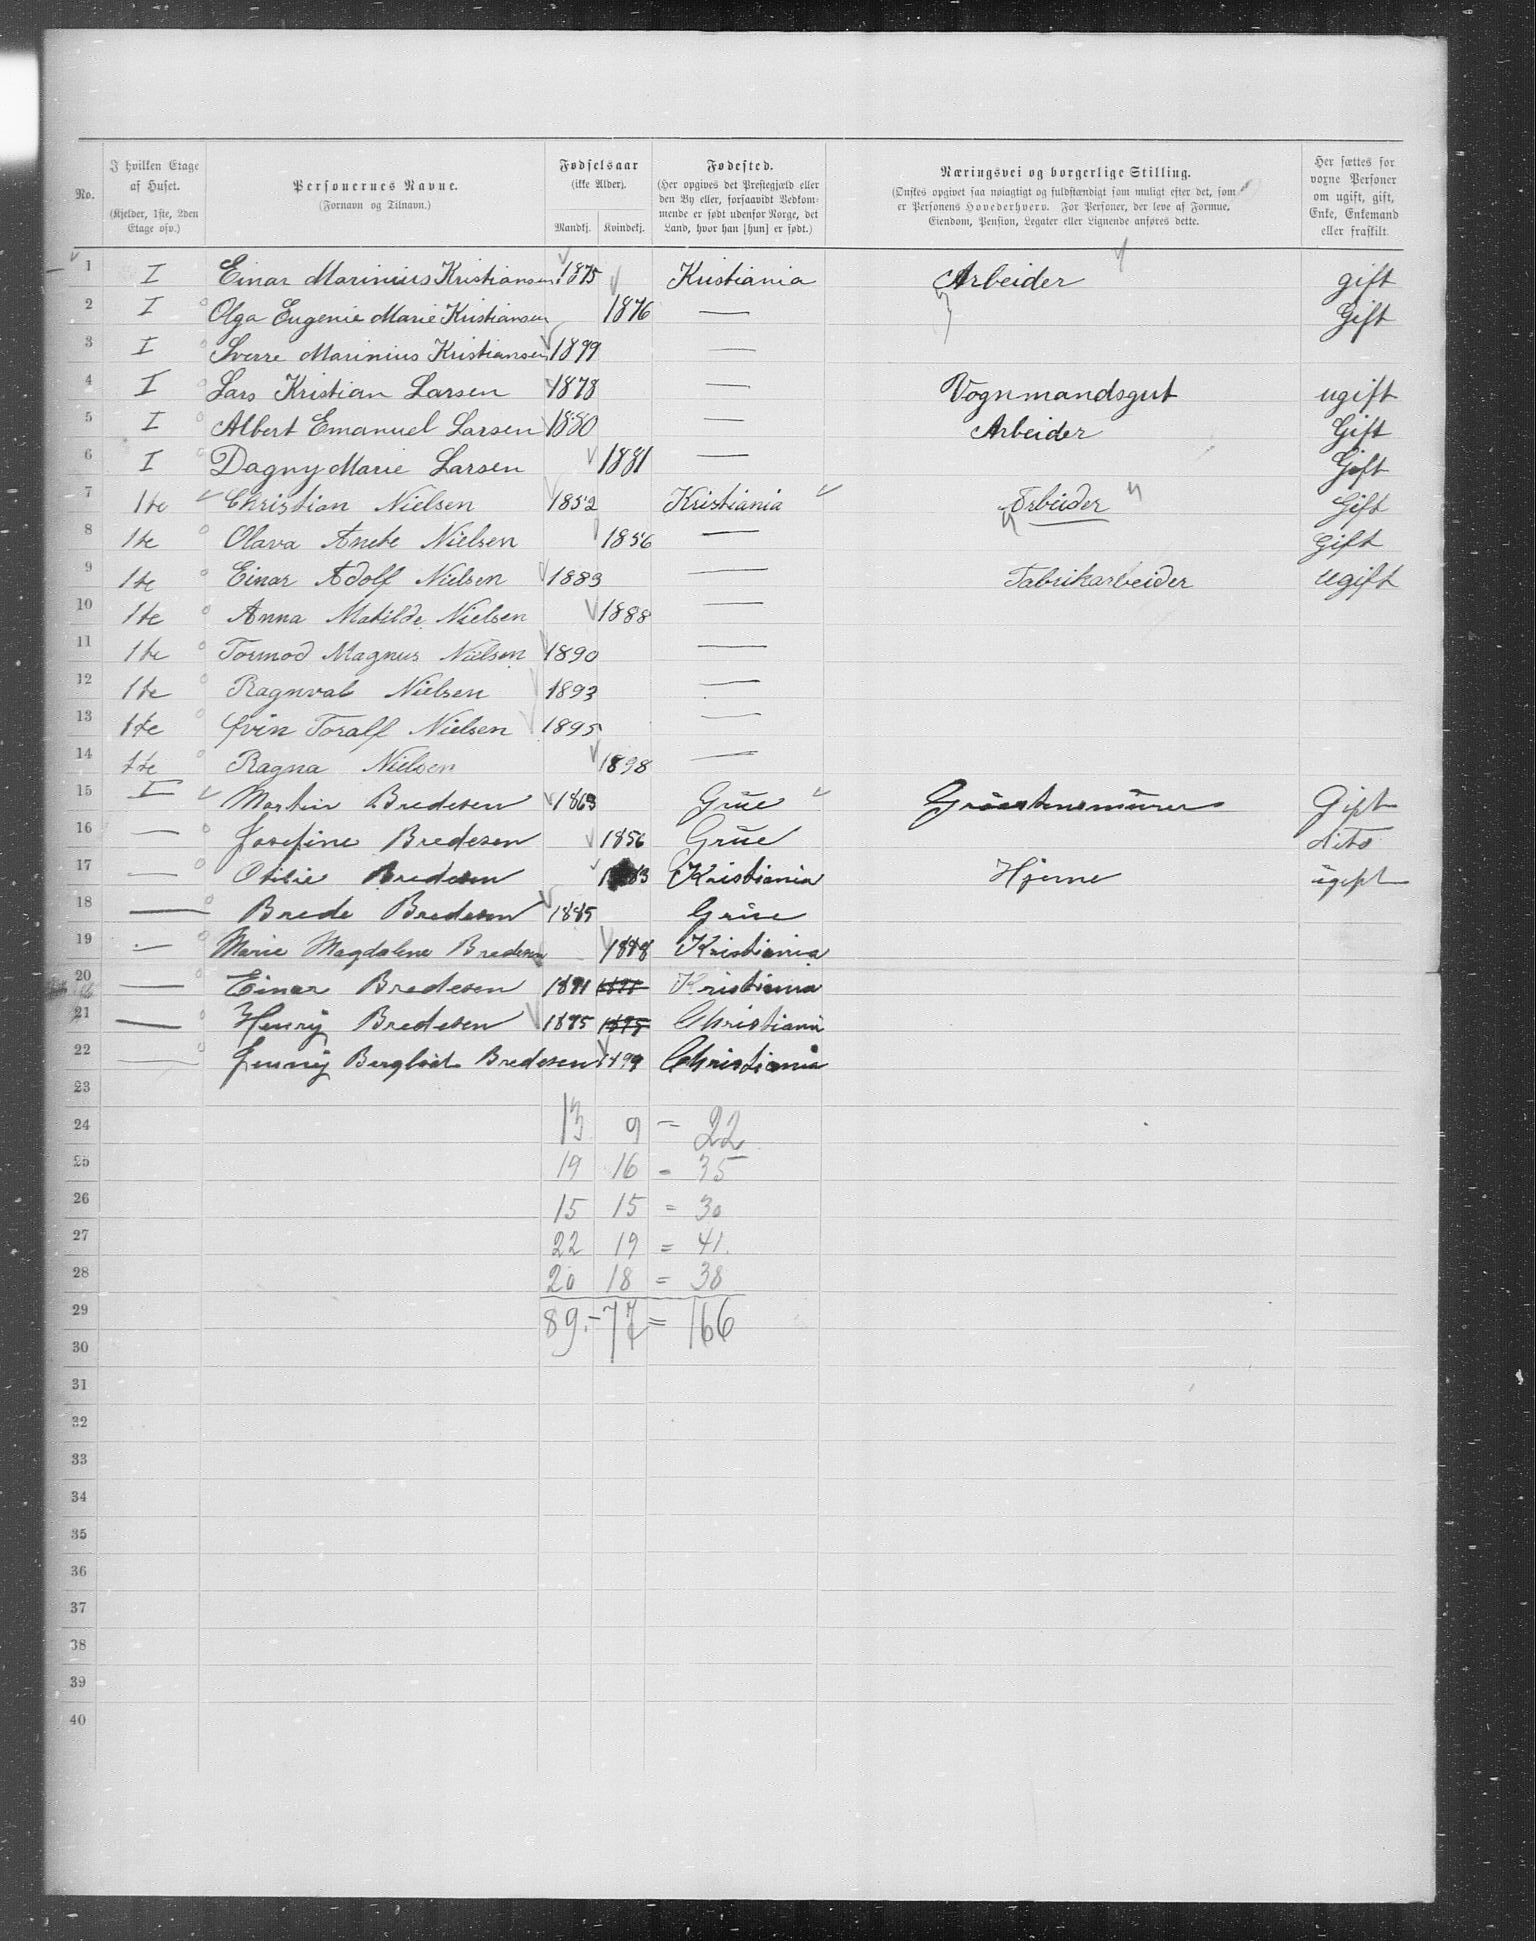 No.
I hvilken Etage af Huset. (Kjelder, 1ste, 2den Etage osv.)
Personernes Navne. (Fornavn og Tilnavn.)
Fødselsaar (ikke Alder). Mandkj. Kvindekj.
Fødested. (Her opgives det Prestegjæld eller den By eller, forsaavidt Vedkommende er født udenfor Norge, det Land, hvor han [hun] er født.)
Næringsvei og borgerlige Stilling. (Ønskes opgivet saa nøiagtigt og fuldstændigt som muligt efter det, som er Personens Hovederhverv. For Personer, der leve af Formue, Eiendom, Pension, Legater eller Lignende anføres dette.
Her sættes for voxne Personer om ugift, gift, Enke, Enkemand eller fraskilt.
1 I Einar Marinius Kristiansen 1875 Kristiania Arbeider gift
2 I Olga Eugenie Marie Kristiansen 1876 — Gift
3 I Sverre Marinius Kristiansen 1899 —
4 I Lars Kristian Larsen 1878 — Vognmandsgut ugift
5 I Albert Emanuel Larsen 1880 — Arbeider Gift
6 I Dagny Marie Larsen 1881 — Gift
7 1te Christian Nielsen 1852 Kristiania Arbeider Gift
8 1te Olava Anete Nielsen 1856 — Gift
9 1te Einar Adolf Nielsen 1883 — Fabrikarbeider ugift
10 1te Anna Matilde Nielsen 1888 —
11 1te Tormod Magnus Nielsen 1890 —
12 1te Ragnval Nielsen 1893 —
13 1te Toralf Nielsen 1895 —
14 1te Ragna Nielsen 1898 —
15 I Martin Bredesen 1863 Grue Gift
16 — Josefine Bredesen 1856 Grue dito
17 — Otilie Bredesen Kristiania Hjeme ugift
18 — Brede Bredesen 1885 Grue
19 — Marie Magdalene Bredesen 1888 Kristiania
20 — Einar Bredesen 1891 Kristiania
21 — Henry Bredesen 1895 1895 Christiania
22 — Jenny Bergliot Bredesen 1899 Christiania
23
24 13 9 — 22
25 19 16 = 35
26 15 15 = 30
27 22 19 = 41.
28 20 18 = 38
29 89.— 77 = 166
30
31
32
33
34
35
36
37
38
39
40